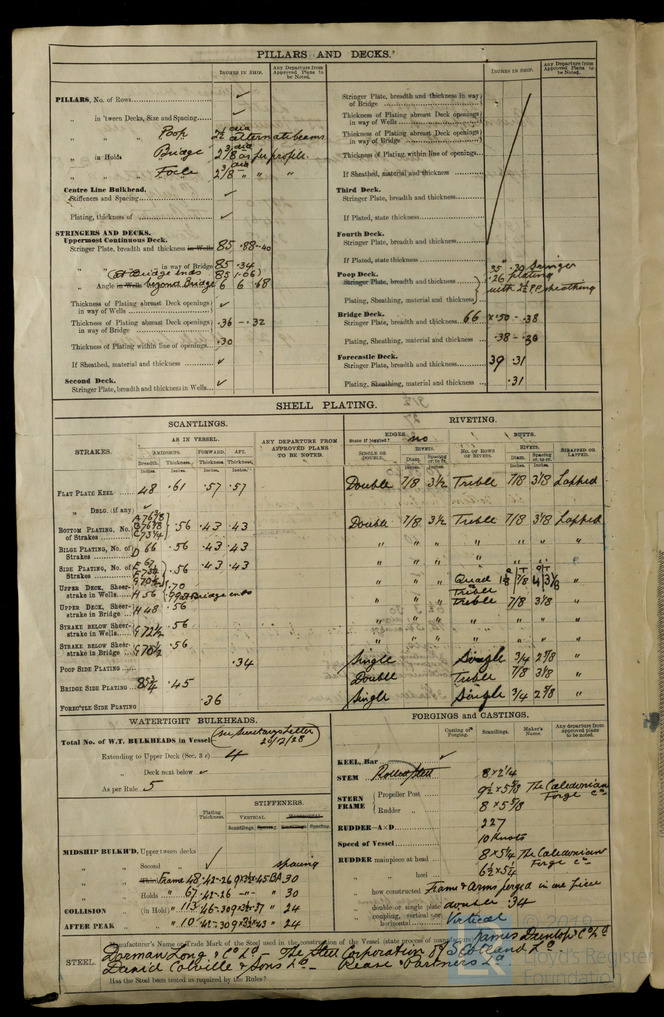 PILLARS AND DECKS.
INCHES IN SHIP.
Any Departure from Approved Plans to be Noted.
PILLARS, No. of Rows
„ in 'tween Decks, Size and Spacing
„ „ Poop 2½ dia alternate beams
„ in Holds Bridge 2⅜ dia as per profile.
„ „ Focle 2⅜ dia „ „
Centre Line Bulkhead.
Stiffeners and Spacing
Plating, thickness of
STRINGERS AND DECKS.
Uppermost Continuous Deck.
Stringer Plate, breadth and thickness in Wells 85 .88-40
„ „ in way of Bridge 85 .34
(at Bridge ends 85 1.06)
„ Angle in Wells beyond Bridge 6 6 .68
Thickness of Plating abreast Deck openings in way of Wells
Thickness of Plating abreast Deck openings in way of Bridge .36 - .32
Thickness of Plating within line of openings .30
If Sheathed, material and thickness
Second Deck.
Stringer Plate, breadth and thickness in Wells
INCHES IN SHIP.
Any Departure from Approved Plans to be Noted.
Stringer Plate, breadth and thickness in way of Bridge
Thickness of Plating abreast Deck openings in way of Wells
Thickness of Plating abreast Deck openings in way of Bridge
Thickness of Plating within line of openings
If Sheathed, material and thickness
Third Deck.
Stringer Plate, breadth and thickness
If Plated, state thickness
Fourth Deck.
Stringer Plate, breadth and thickness
If Plated, state thickness
Poop Deck.
Stringer Plate, breadth and thickness 35" .29 Stringer
.26 plating
Plating, Sheathing, material and thickness with 2½ P.P. sheathing
Bridge Deck.
Stringer Plate, breadth and thickness 66 x .50 - .38
Plating, Sheathing, material and thickness .38 - .36
Forecastle Deck.
Stringer Plate, breadth and thickness 39 .31
Plating, Sheathing, material and thickness .31
SHELL PLATING.
SCANTLINGS.
RIVETING.
STRAKES.
AS IN VESSEL.
AMIDSHIPS.
FORWARD.
AFT.
Breadth.
Thickness.
Thickness.
Thickness.
ANY DEPARTURE FROM APPROVED PLANS TO BE NOTED.
EDGES.
State if joggled? no
SINGLE OR DOUBLE.
RIVETS.
Diam.
Spacing cr. to cr.
BUTTS.
No. OF ROWS OF RIVETS.
RIVETS.
Diam.
Spacing cr. to cr.
STRAPPED OR LAPPED.
FLAT PLATE KEEL 48 .61 .57 .57 Double 7/8 3½ Treble 7/8 3⅛ Lapped
„ DBLG. (if any)
BOTTOM PLATING, No. of Strakes .56 .43 .43 Double 7/8 3½ Treble 7/8 3⅛ Lapped
BILGE PLATING, No. of Strakes D 66 .56 .43 .43 „ „ „ „ „ „ „
SIDE PLATING, No. of Strakes E 67 .56 .43 .43
UPPER DECK, Sheerstrake in Wells H 56 .70 Quad Treble
UPPER DECK, Sheerstrake in Bridge H 48 .56 Treble 7/8 3⅛ „
STRAKE BELOW Sheerstrake in Wells G 72½ .56
STRAKE BELOW Sheerstrake in Bridge G 70½ .56
POOP SIDE PLATING .34 Single Single 3/4 2⅝ „
BRIDGE SIDE PLATING 85¼ .45 Double Treble 7/8 3⅛ „
FOREC'TLE SIDE PLATING .36 Single Single 3/4 2⅝ „
WATERTIGHT BULKHEADS.
Total No. of W.T. BULKHEADS in Vessel (see Secretary's letter 20/12/28)
Extending to Upper Deck (Sec. 3 c) 4
„ Deck next below
As per Rule 5
Plating Thickness.
STIFFENERS.
VERTICAL
HORIZONTAL
Scantlings.
Spacing.
Scantlings.
Spacing.
MIDSHIP BULKH'D, Upper tween decks
„ „ Second „ spacing
„ „ Third Frame 48 .42-26 30
„ „ Holds „ 67 .42-26 „ 30
COLLISION „ (in Hold) „ 113 .46-30 24
AFTER PEAK „ „ 10 24
FORGINGS and CASTINGS.
Casting or Forging.
Scantlings.
Maker's Name.
Any departure from approved plans to be noted.
KEEL, Bar
STEM Rolled steel 8 x 2¼
STERN FRAME
Propeller Post 9½ x 5⅝ The Caledonian Forge Co
Rudder „ 8 x 5⅝
RUDDER—A×D 227
Speed of Vessel 10 Knots
RUDDER mainpiece at head 8 x 5¼ The Caledonian Forge Co
„ „ heel 6½ x 5¼
„ how constructed Frame & Arms forged in one piece
„ double or single plate double .34
„ coupling, vertical or horizontal Vertical
STEEL.
Manufacturer's Name or Trade Mark of the Steel used in the construction of the Vessel (state process of manufacture) James Dunlop & Co Ld
Dorman Long & Co Ld - The Steel Corporation of Scotland Ld
David Colville & Sons Ld - Pease & Partners Ld
Has the Steel been tested as required by the Rules?
© 2019
Lloyd's Register
Foundation